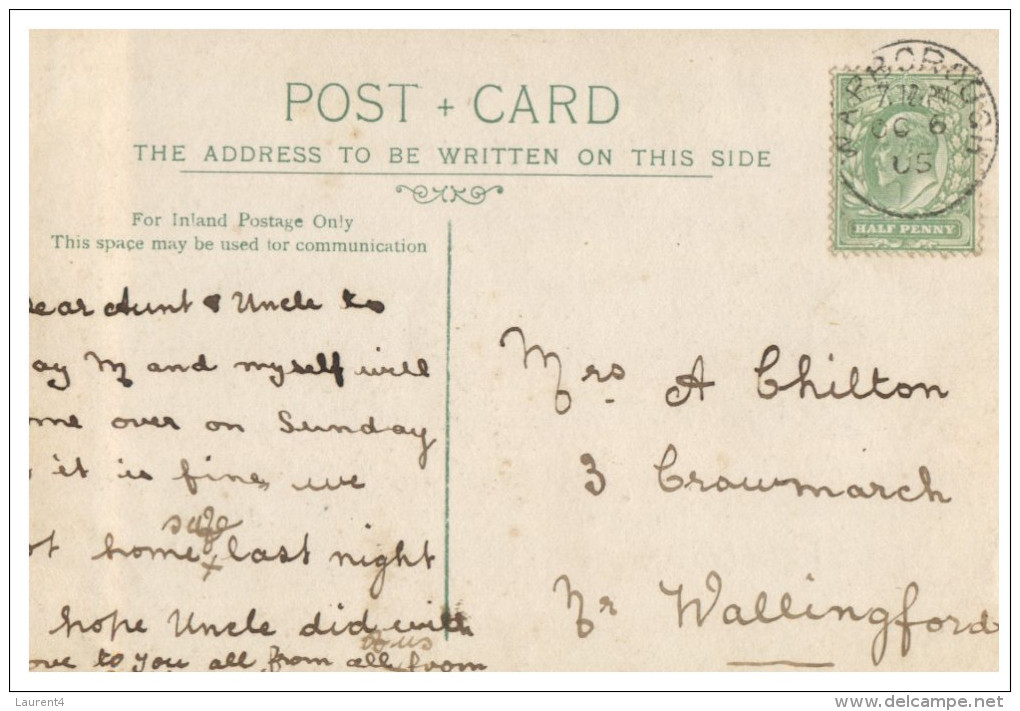 POST + CARD
THE ADDRESS TO BE WRITTEN ON THIS SIDE
WARBOROUGH
OC 6
05
HALF PENNY
For Inland Postage Only
This space may be used for communication
ear Aunt & Uncle to
ay M and myself will
me over on Sunday
it is fine we
safe
ot home x last night
hope Uncle did with
to us
ove to you all from all from
Mrs A Chilton
3 Crowmarch
Nr Wallingford
Laurent4
www.delcampe.net